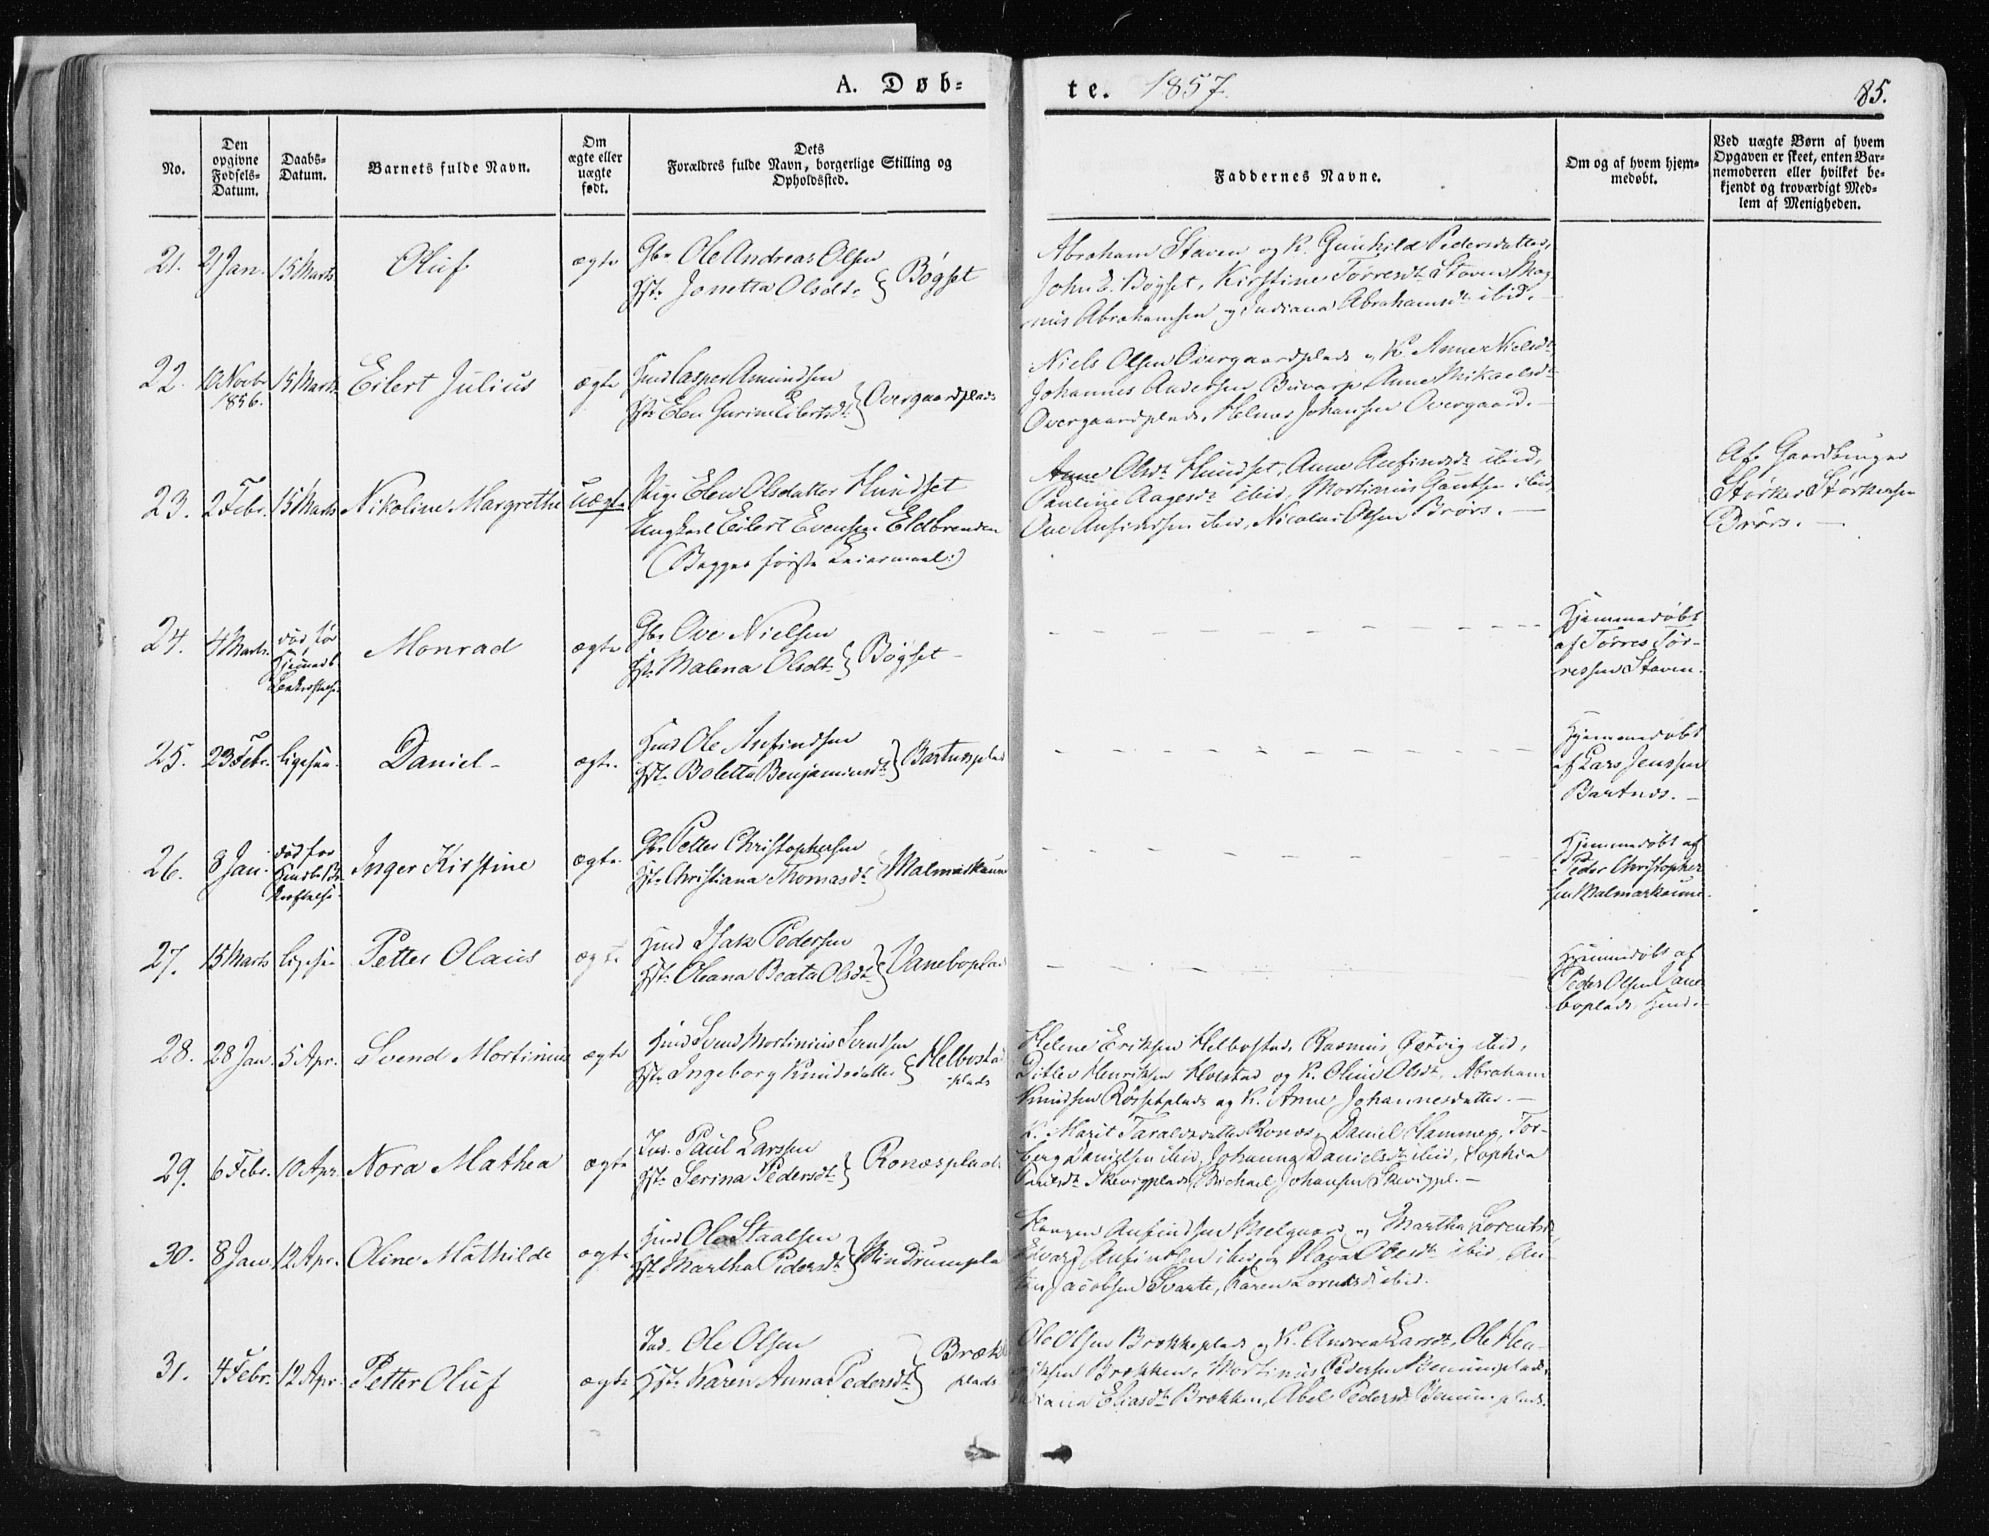 A. Døb-
te. 1857.
85.
No.
Den
opgivne
Fødsels-
Datum.
Daabs-
Datum.
Barnets fulde Navn.
Om
ægte eller
uægte
født.
Dets
Forældres fulde Navn, borgerlige Stilling og
Opholdssted.
Faddernes Navne.
Om og af hvem hjem-
medøbt.
Ved uægte Børn af hvem
Opgaven er skeet, enten Bar-
nemoderen eller hvilket be-
kjendt og troværdigt Med-
lem af Menigheden.
21. 2 Jan. 15 Marts Oluf ægte
Gbr Ole Andreas Olsen
Hst. Jonetta Olsdt. } Bøgset
Abraham Staven og K. Gunhild Pedersdatter,
John E. Bøgset, Kirstine Torresdt Staven, Mag-
nus Abrahamsen og Indiana Abrahamsdt ibid. –
22. 10 Novbr
1856. 15 Marts Eilert Julius ægte
Huusm Casper Amundsen
Hst. Elen Gurine Eilertsdt } Overgaardplads
Niels Olsen Overgaardplads og K. Anne Nielsdt,
Johannes Andersen Buvarp, Anne Mikaelsdt
Overgaardplads, Johansen Overgaard. –
23. 2 Febr. 15 Marts Nikoline Margrethe Uægte
Pige Elen Olsdatter Hundset
Ungkarl Eilert Evensen Eldbrenden
(Begges første Leiermaal:)
Anne Olsdt Hundset, Anne Anfindsdt ibid,
Pauline Aagesdt ibid, Mortinus Gautsen ibid,
Ove Anfindsen ibid, Nicolai Olsen Brørs. –
Af Gaardbruger
Størker Størkersen
Brørs. –
24. 4 Marts. død før
Hjemmed
Bekræftelse. Monrad ægte
Gbr Ove Nielsen
Hst. Malena Olsdt } Bøgset –
Hjemmedøbt
af Tørres Tør-
ressen Staven.
25. 23 Febr. ligesaa. Daniel – ægte.
Huusm Ole Anfindsen
Hst. Boletta Benjaminsdt } Bartnesplads
Hjemmedøbt
af Lars Jenssen
Bartnes. –
26. 8 Jan. død før
Inger Kirstine ægte.
Gbr Petter Christophersen
Hst. Christiana Thomasdt } Malmøskaun
Hjemmedøbt af
Peder Christopher-
sen Malmøskaun.
27. 15 Marts ligesaa Petter Olaus ægte
Huusm Isak Pedersen
Hst. Oleana Beata Olsdt } Vaneboplads
Hjemmedøbt af
Peder Olsen Vane-
boplads
28. 28 Jan. 5 Apr. Svend Mortinus ægte
Huusm Svend Mortinius Svendsen
Hst. Ingeborg Knudsdatter } Helbostad
plads
Helene Eriksen Helbostad, Rasmus ibid,
Ditlev Henriksen Holstad og K. Oline Olsdt, Abraham
Knudsen Røssetplads og K. Anne Johannesdatter. –
29. 6 Febr. 10 Apr. Nora Mathea ægte
Ind. Paul Larssen
Hst. Serina Pedersdt } Ronæsplads
K. Marit Taraldsdatter Ronæs, Daniel Hammer, Tor-
berg Danielsen ibid, Johanna Danielsdt ibid, Sophia
Paulsdt Skevigplads, Michael Johansen Skevigpl. –
30. 8 Jan 12 Apr. Oline Mathilde ægte
Huusm Ole Staalsen
Hst. Martha Pedersdt } Mindrumpla
Haagen Anfindsen og Martha Lorentsd
Anfindsen ibid, Olsdt ibid, An-
Jacobsen Svarte, Karen Lorntsdt ibid.
31. 4 Febr. 12 Apr. Petter Oluf ægte
Ind. Ole Olsen
Hst. Karen Anna Pedersdt } Bræk
plads
Ole Olsen Brækkeplads og K. Andrea Larsdt, Ole Hen-
riksen Brækken, Mortinus Pedersen
Eliasdt Brækken, Abel Pedersdt plads.